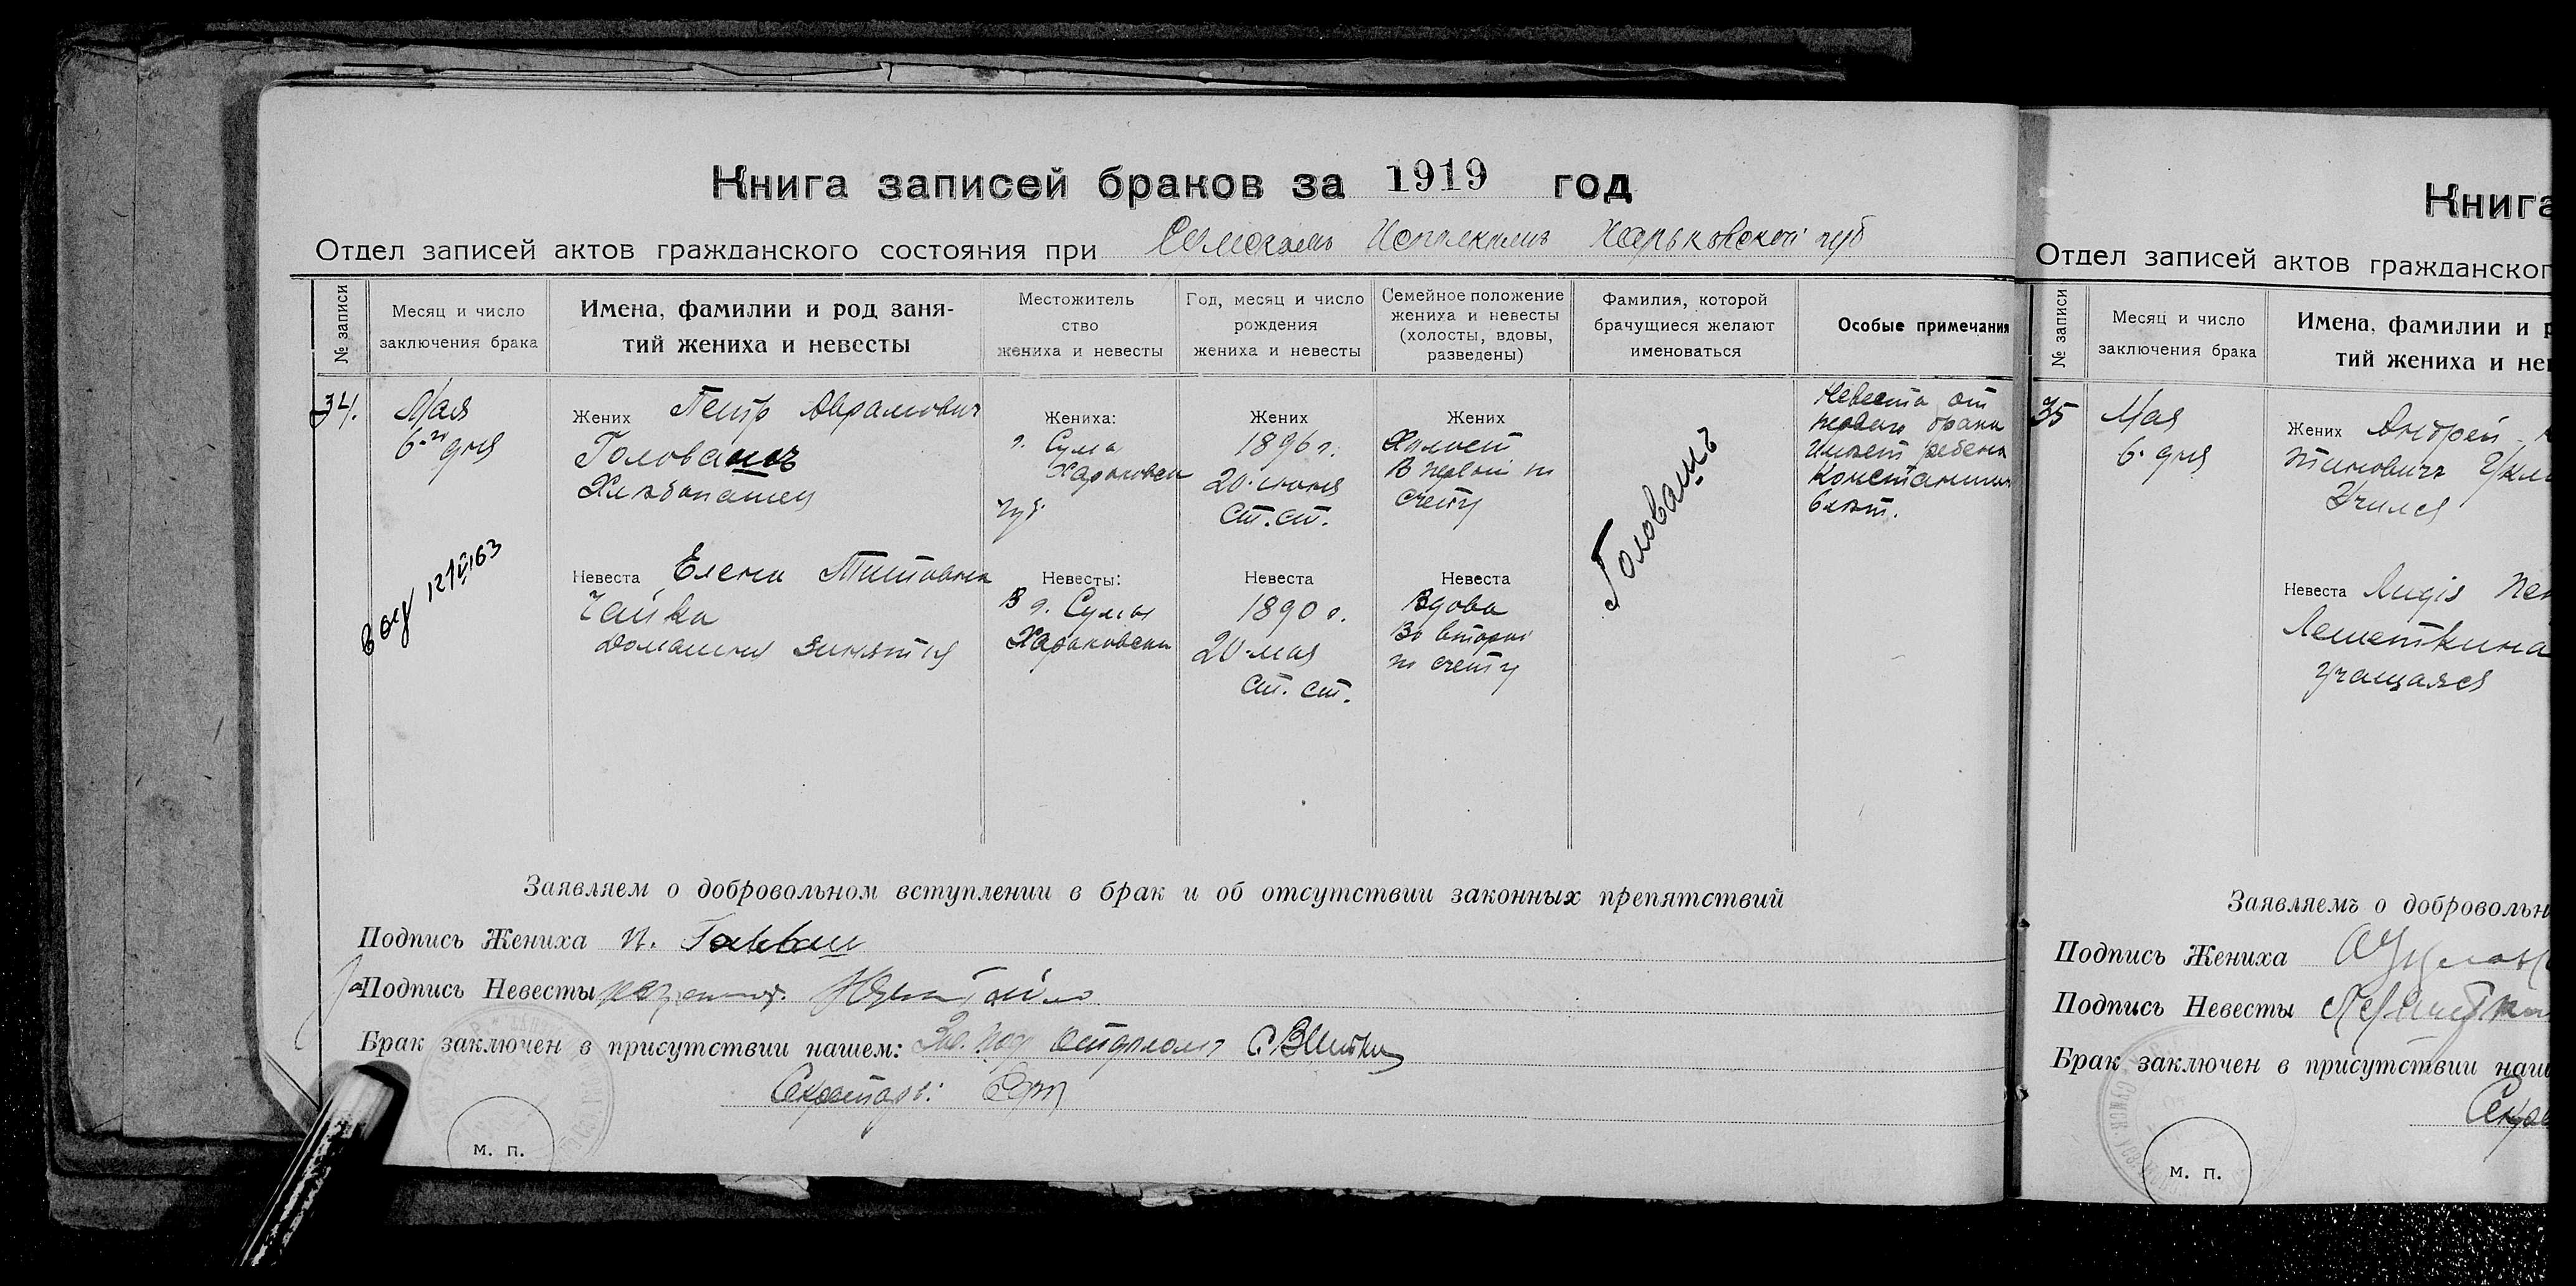 Книга записей браков за 1919 год
Отдел записей актов гражданского состояния при Сумском Исполкоме Харьковской губ
№ записи
Месяц и число
заключения брака
Имена, фамилии и род заня-
тий жениха и невесты
Местожитель
ство
жениха и невесты
Год, месяц и число
рождения
жениха и невесты
Семейное положение
жениха и невесты
(холосты, вдовы,
разведены)
Фамилия, которой
брачущиеся желают
именоваться
Особые примечания
34.
Мая
6-го дня
Жених Петр Аврамович
Головашъ
Хлебопашец
Жениха:
г. Сумы
Харьковск
губ.
Жених
1896 г.
20 июня
ст. ст.
Жених
Холост
В первой по
счету
Головашъ
Невеста от
первого брака
имеет ребенка
Константина
6 лет.
Невеста Елена Титовна
Чайка
домашния занятия
Невесты:
В г. Сумы
Харьковской
Невеста
1890 г.
20 мая
ст. ст.
Невеста
Вдова
Во второй
по счету
12/V 63
Заявляем о добровольном вступлении в брак и об отсутствии законных препятствий
Подпись Жениха П. Головаш
Подпись Невесты
Брак заключен в присутствии нашем: Зав. под отделом
Секретарь:
м. п.
Книга
Отдел записей актов гражданског
№ записи
Месяц и число
заключения брака
Имена, фамилии и р
тий жениха и не
35
Мая
6 дня
Жених Андрей
Учился
Невеста Лидія
Лешеткина
учащаяся
Заявляемъ о добровольн
Подпись Жениха
Подпись Невесты
Брак заключен в присутствии наш
Секре
м. п.